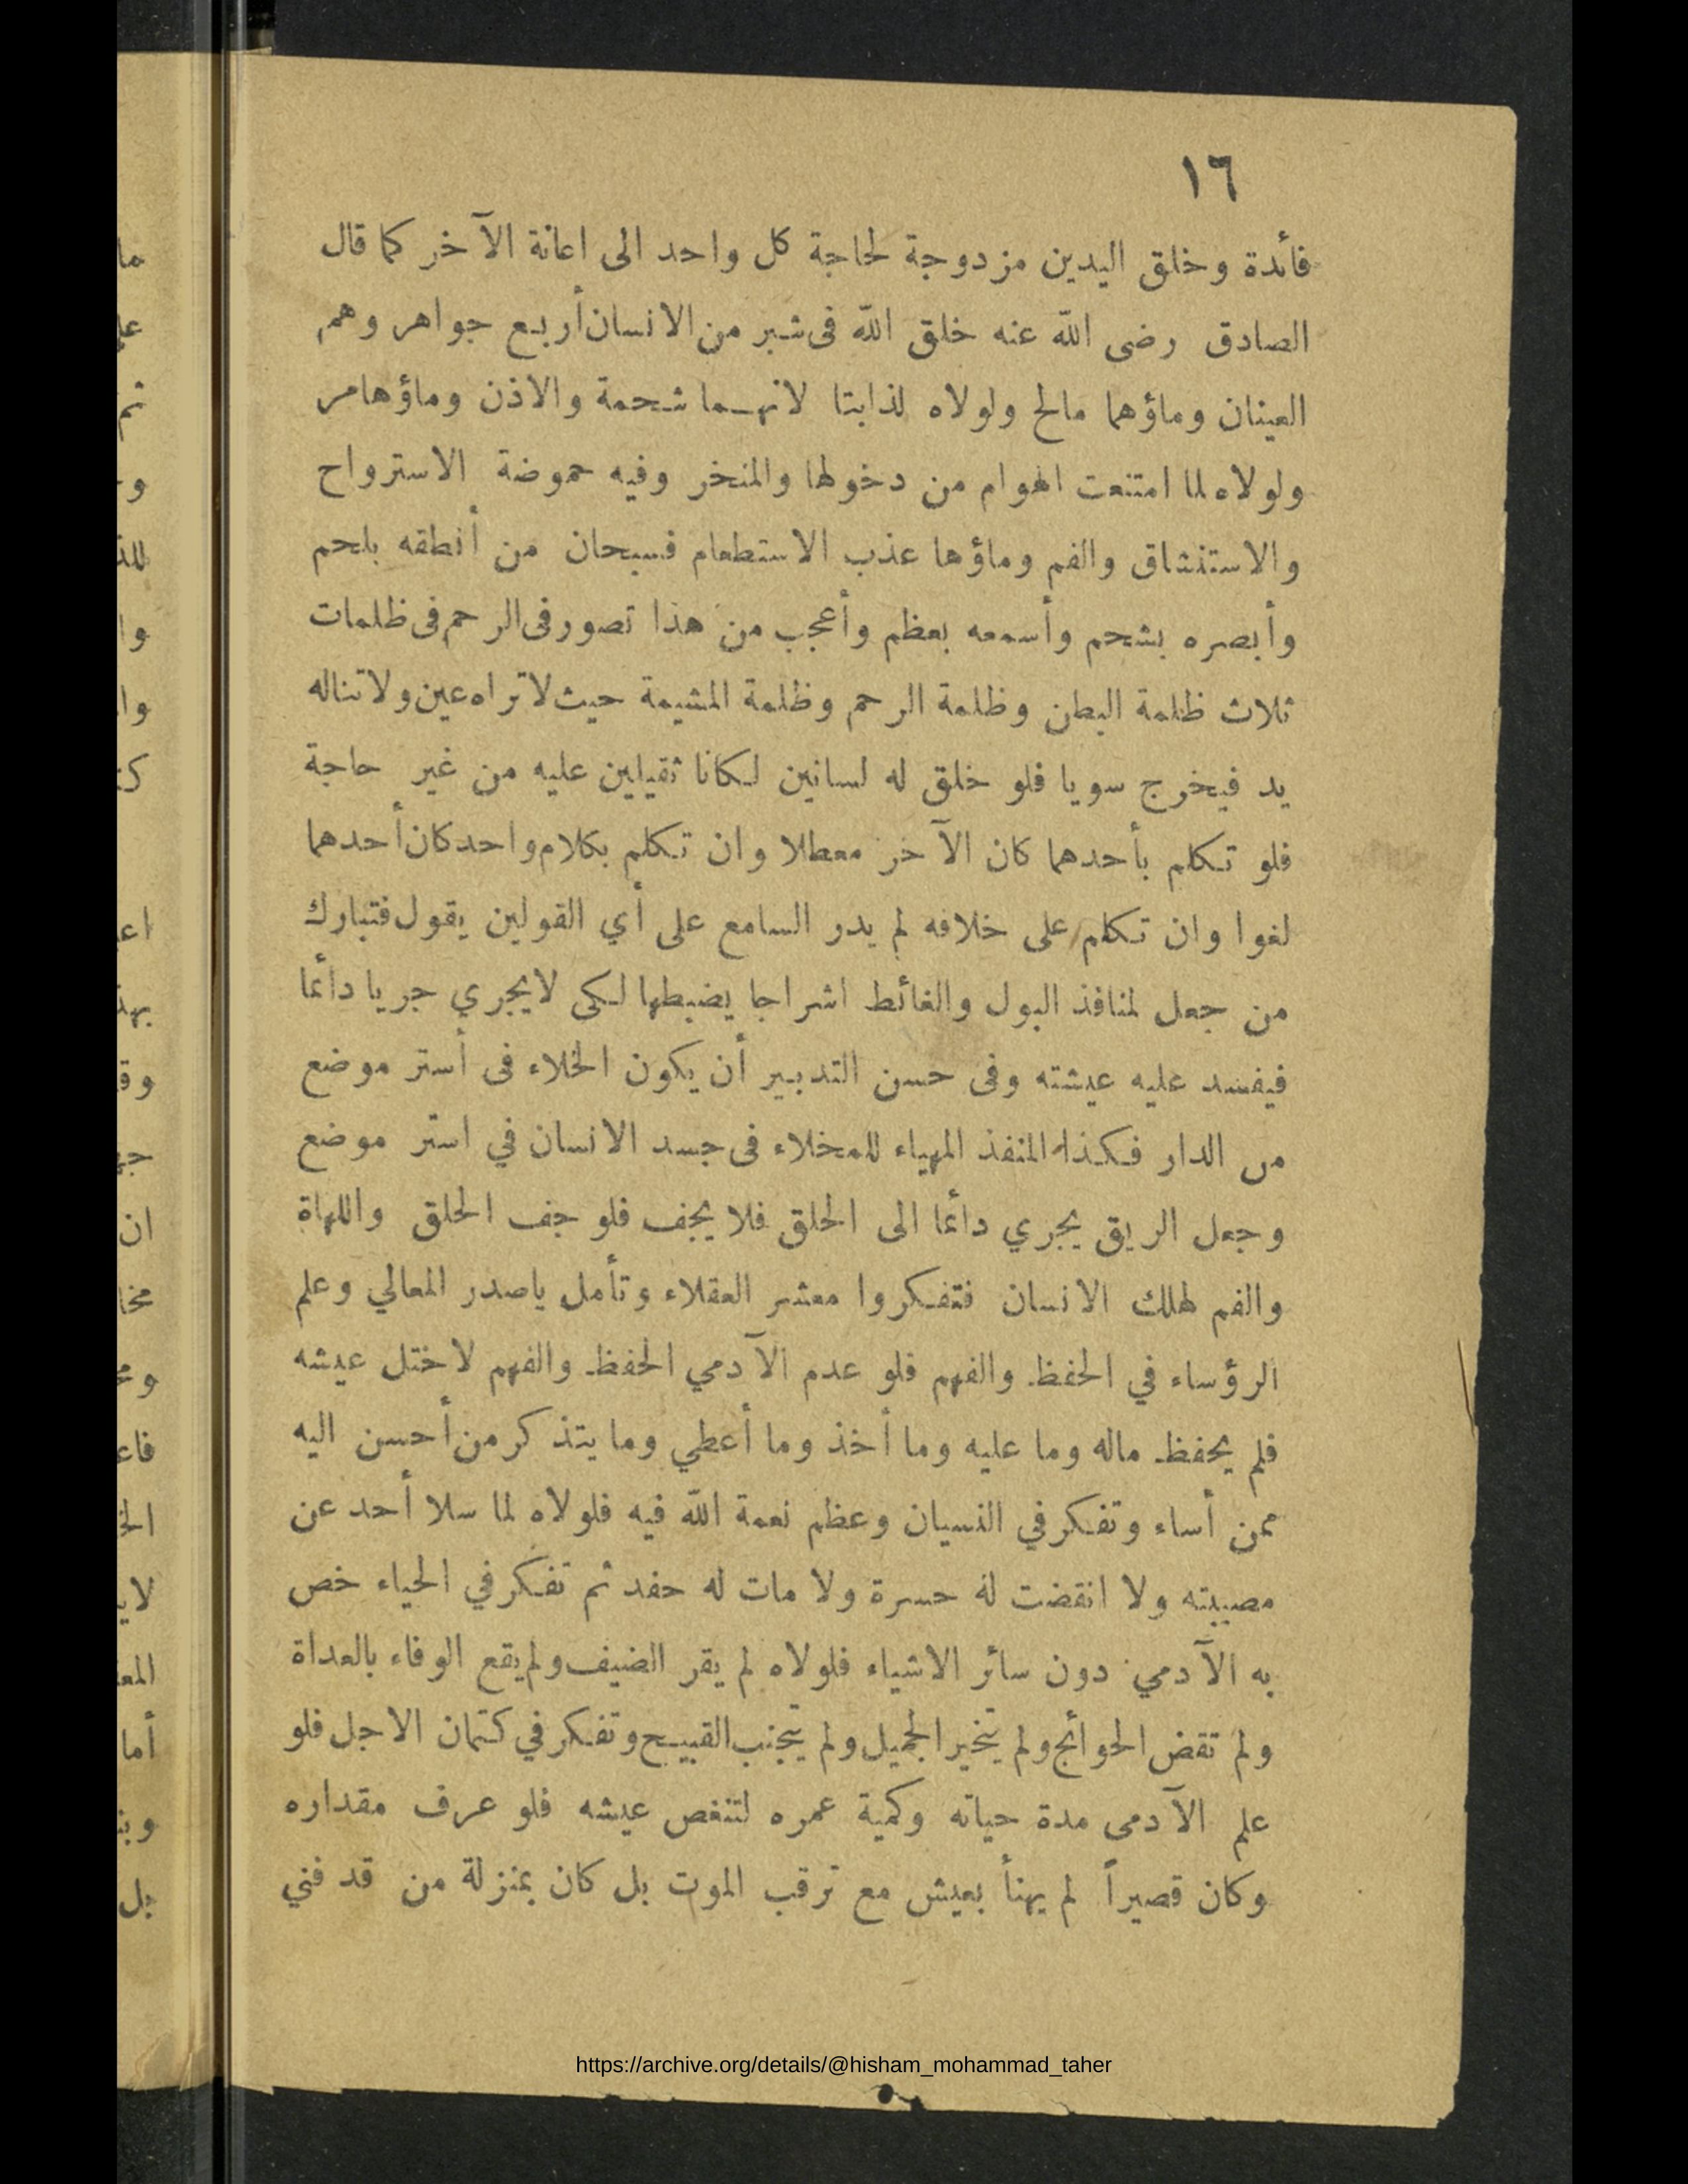 ١٦
فائدة وخلق اليدين مزدوجة لحاجة كل واحد الى اعانة الآخر كما قال
الصادق رضى الله عنه خلق الله فى شبر من الانسان أربع جواهر وهم
العينان وماؤهما مالح ولولاه لذابتا لانهما شحمة والاذن وماؤها مر
ولولاه لما امتنعت الهوام من دخولها والمنخر وفيه حموضة الاسترواح
والاستنشاق والفم وماؤها عذب الاستطعام فسبحان من أنطقه بلحم
وأبصره بشحم وأسمعه بعظم وأعجب من هذا تصور فى الرحم فى ظلمات
ثلاث ظلمة البطن وظلمة الرحم وظلمة المشيمة حيث لا تراه عين ولا تناله
يد فيخرج سويا فلو خلق له لسانين لكانا ثقيلين عليه من غير حاجة
فلو تكلم بأحدهما كان الآخر معطلا وان تكلم بكلام واحد كان أحدهما
لغوا وان تكلم على خلافه لم يدر السامع على أي القولين يقول فتبارك
من جعل لمنافذ البول والغائط اشراجا يضبطها لكى لا يجري جريا دائما
فيفسد عليه عيشته وفى حسن التدبير أن يكون الخلاء فى أستر موضع
من الدار فكذا المنفذ المهياء للمخلاء فى جسد الانسان في استر موضع
وجعل الريق يجري دائما الى الحلق فلا يجف فلو جف الحلق واللهاة
والفم لهلك الانسان فتفكروا معشر العقلاء وتأمل ياصدر المعالي وعلم
الرؤساء في الحفظ والفهم فلو عدم الآدمي الحفظ والفهم لاختل عيشه
فلم يحفظ ماله وما عليه وما أخذ وما أعطي وما يتذكر من أحسن اليه
ممن أساء وتفكر في النسيان وعظم نعمة الله فيه فلولاه لما سلا أحد عن
مصيبته ولا انقضت له حسرة ولا مات له حفد ثم تفكر في الحياء خص
به الآدمي دون سائر الاشياء فلولاه لم يقر الضيف ولم يقع الوفاء بالعداة
ولم تقض الحوائج ولم يتخير الجميل ولم يتجنب القبيح وتفكر في كتمان الاجل فلو
علم الآدمى مدة حياته وكمية عمره لتنغص عيشه فلو عرف مقداره
وكان قصيراً لم يهنأ بعيش مع ترقب الموت بل كان بمنزلة من قد فني
https://archive.org/details/@hisham_mohammad_taher